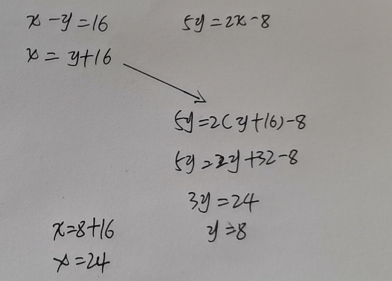 x - y = 16
5y = 2x - 8
x = y + 16
5y = 2(y + 16) - 8
5y = 2y + 32 - 8
3y = 24
x = 8 + 16
y = 8
x = 24